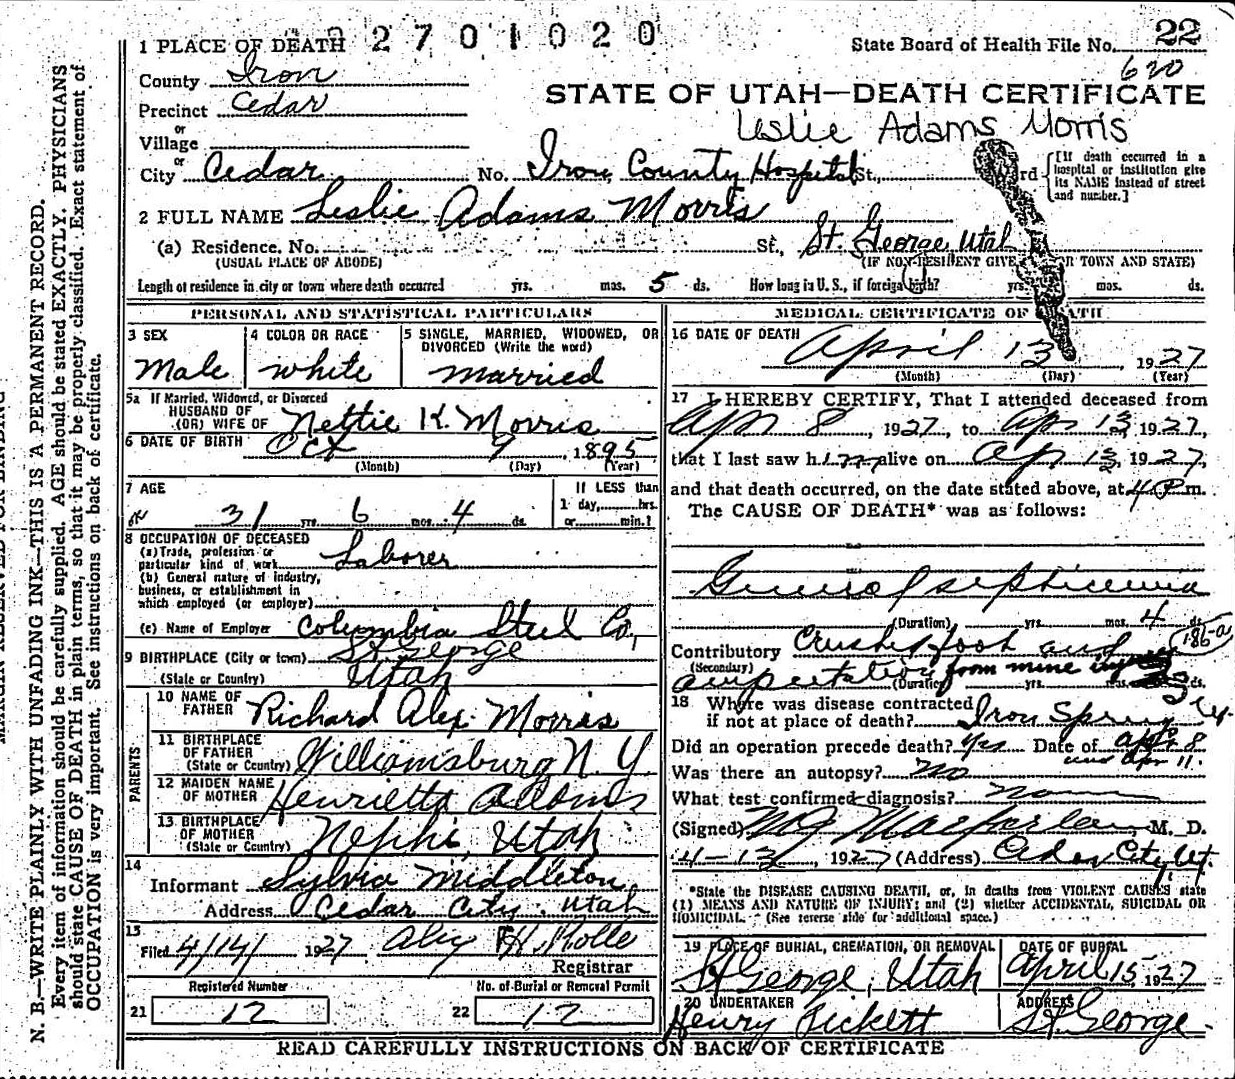 2701020
State Board of Health File No. 22
620
1 PLACE OF DEATH
County Iron
Precinct Cedar
or
Village
or
City Cedar No. Iron County Hospital St., rd
[If death occurred in a hospital or institution give its NAME instead of street and number.]
STATE OF UTAH—DEATH CERTIFICATE
Leslie Adams Morris
2 FULL NAME Leslie Adams Morris
(a) Residence. No. St., St. George, Utah
(USUAL PLACE OF ABODE) (IF NON-RESIDENT GIVE OR TOWN AND STATE)
Length of residence in city or town where death occurred yrs. mos. 5 ds. How long in U. S., if foreign birth? yrs. mos. ds.
PERSONAL AND STATISTICAL PARTICULARS
3 SEX
Male
4 COLOR OR RACE
white
5 SINGLE, MARRIED, WIDOWED, OR DIVORCED (Write the word)
married
5a If Married, Widowed, or Divorced
HUSBAND OF
(OR) WIFE OF Nettie K. Morris
6 DATE OF BIRTH Oct 9, 1895
(Month) (Day) (Year)
7 AGE
31 yrs. 6 mos. 4 ds.
If LESS than
1 day, hrs.
or min.?
8 OCCUPATION OF DECEASED
(a) Trade, profession or
particular kind of work Laborer
(b) General nature of industry,
business, or establishment in
which employed (or employer)
(c) Name of Employer Columbia Steel Co,
9 BIRTHPLACE (City or town) St George
(State or Country) Utah
PARENTS
10 NAME OF
FATHER Richard Alex. Morris
11 BIRTHPLACE
OF FATHER
(State or Country) Williamsburg N. Y.
12 MAIDEN NAME
OF MOTHER Henrietta Adams
13 BIRTHPLACE
OF MOTHER
(State or Country) Nephi, Utah
14
Informant Sylvia Middleton
Address Cedar City, Utah
15
Filed 4/14/ 1927 H. Rolle
Registrar
Registered Number
21 12
No. of Burial or Removal Permit
22 12
MEDICAL CERTIFICATE OF DEATH
16 DATE OF DEATH
April 13, 1927
(Month) (Day) (Year)
17 I HEREBY CERTIFY, That I attended deceased from
Apr 8, 1927, to Apr 13, 1927,
that I last saw him alive on Ap 13, 1927,
and that death occurred, on the date stated above, at 4 P.m.
The CAUSE OF DEATH* was as follows:
General septicemia
(Duration) yrs. mos. 4 ds.
Contributory Crushed foot and 186-a
(Secondary)
amputation from mine injury
(Duration) yrs. mos. 5 ds.
18 Where was disease contracted
if not at place of death? Iron Spring Ut.
Did an operation precede death? Yes Date of Apr 8
and Apr 11.
Was there an autopsy? no
What test confirmed diagnosis? none
(Signed) M J Macfarlane, M. D.
4-13, 1927 (Address) Cedar City, Ut.
*State the DISEASE CAUSING DEATH, or, in deaths from VIOLENT CAUSES, state
(1) MEANS AND NATURE OF INJURY; and (2) whether ACCIDENTAL, SUICIDAL OR
HOMICIDAL. (See reverse side for additional space.)
19 PLACE OF BURIAL, CREMATION, OR REMOVAL
St George, Utah
DATE OF BURIAL
April 15, 1927
20 UNDERTAKER
Henry Pickett
ADDRESS
St George.
READ CAREFULLY INSTRUCTIONS ON BACK OF CERTIFICATE
MARGIN RESERVED FOR BINDING
N. B.—WRITE PLAINLY WITH UNFADING INK—THIS IS A PERMANENT RECORD.
Every item of information should be carefully supplied. AGE should be stated EXACTLY. PHYSICIANS
should state CAUSE OF DEATH in plain terms, so that it may be properly classified. Exact statement of
OCCUPATION is very important. See instructions on back of certificate.